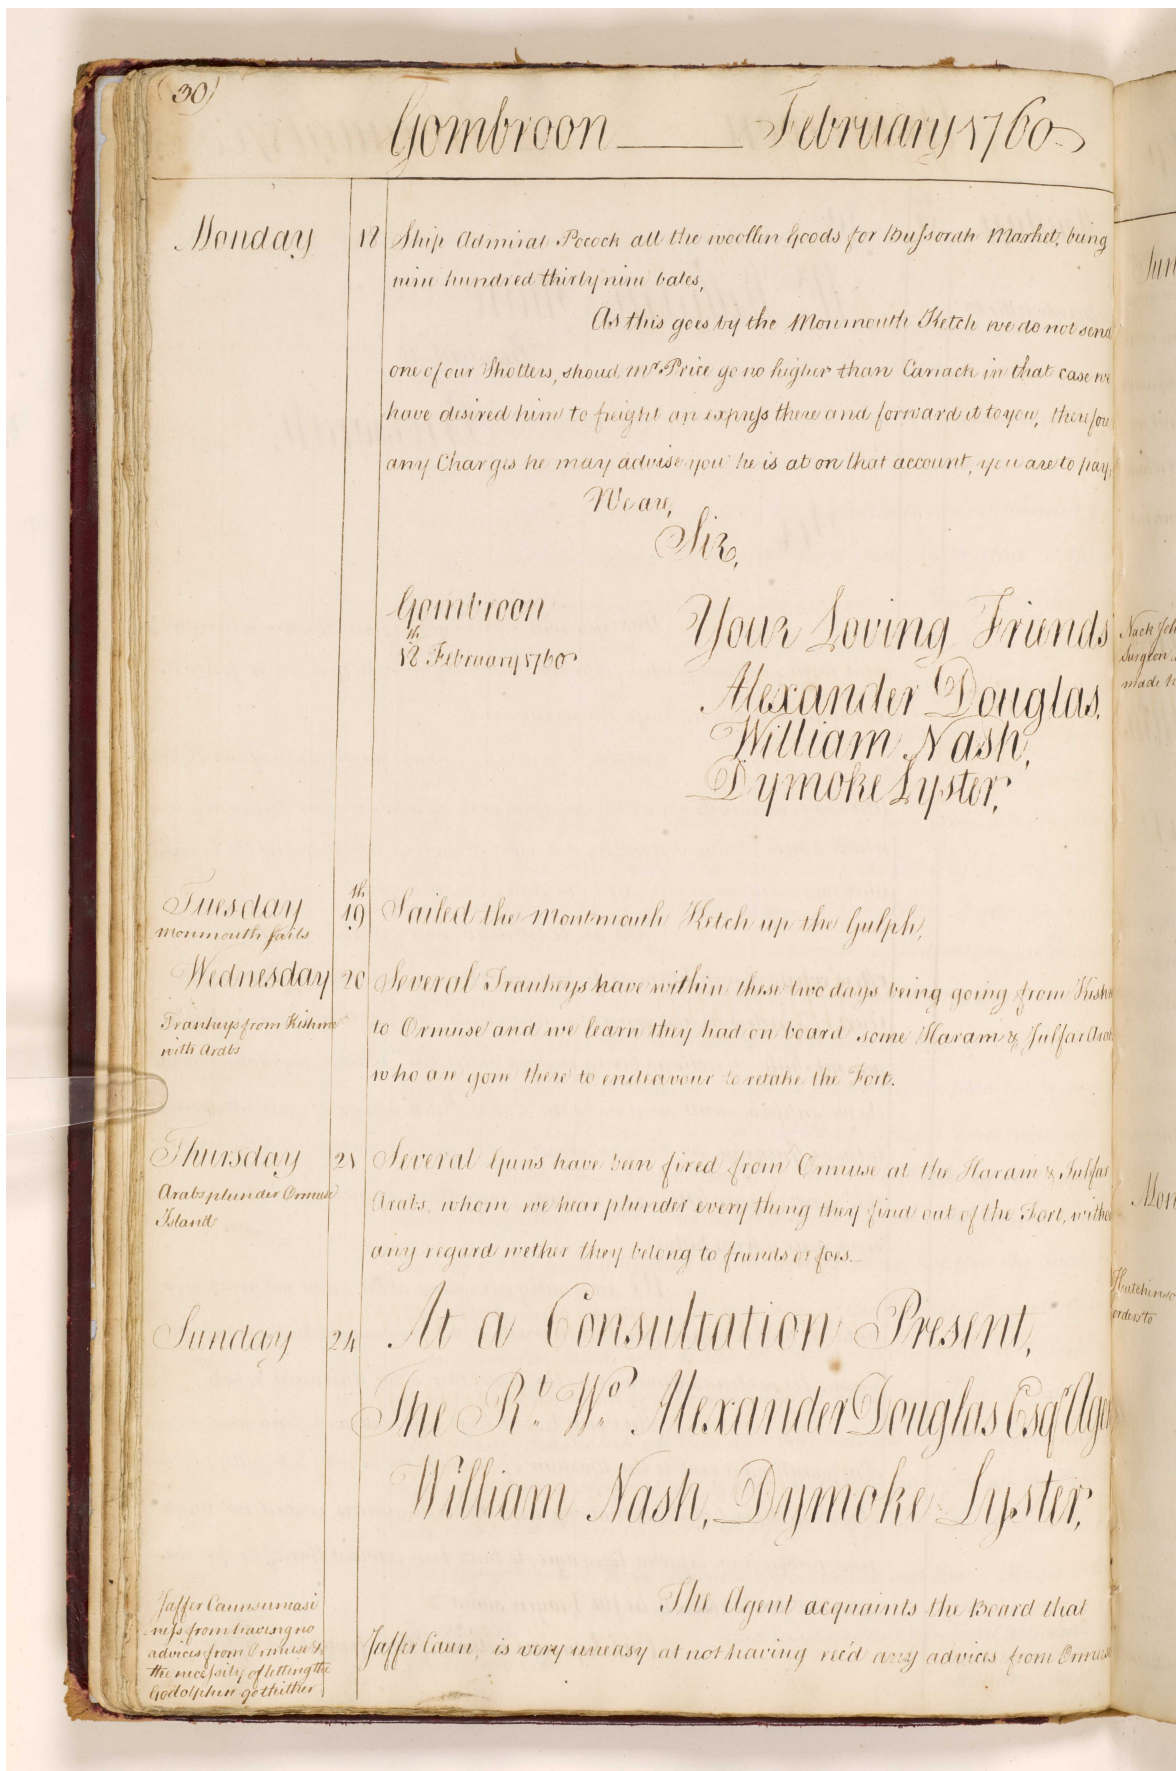 30)
Gombroon February 1760
Monday 18 Ship Admiral Pocock all the woollen Goods for Bussorah Market, being
nine hundred thirty nine bales,
As this goes by the Monmouth Ketch we do not send
one of our Shotters, shoud Mr. Price go no higher than Carrack in that case we
have desired him to freight an express there and forward it to you, therefore
any Charges he may advise you he is at on that account, you are to pay,
We are,
Sir,
Gombroon
18th February 1760
Your Loving Friends
Alexander Douglas,
William Nash,
Dymoke Lyster,
Tuesday 19th Sailed the Montmouth Ketch up the Gulph,
Monmouth sails
Wednesday 20 Several Trankeys have within these two days being going from Kishm
Trankeys from Kishme
with Arabs
to Ormuse and we learn they had on board some Haram & Julfar Arab
who are gone there to endeavour to retake the Fort.
Thursday 21 Several Guns have been fired from Ormuse at the Haram & Julfar
Arabs plunder Ormuse
Island
Arabs, whom we hear plunder every thing they find out of the Fort, witho
any regard wether they belong to friends or foes.
Sunday 24 At a Consultation Present,
The Rt. Wo. Alexander Douglas Esqr. Agen
William Nash, Dymoke Lyster,
Jaffer Cauns uneasi
-ness from having no
advices from Ormuse &
the necessity of letting the
Godolphin go thither
The Agent acquaints the Board that
Jaffer Caun, is very uneasy at not having rec'd any advices from Ormuse
Nack Joh
Surgeon
made
Mon
Hutchinso
orders to